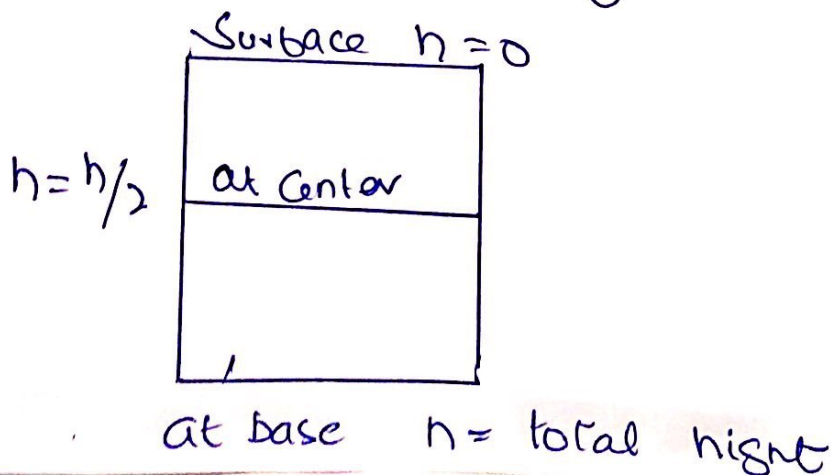 Surface h = 0
h = h/2 at Center
at base h = total hight